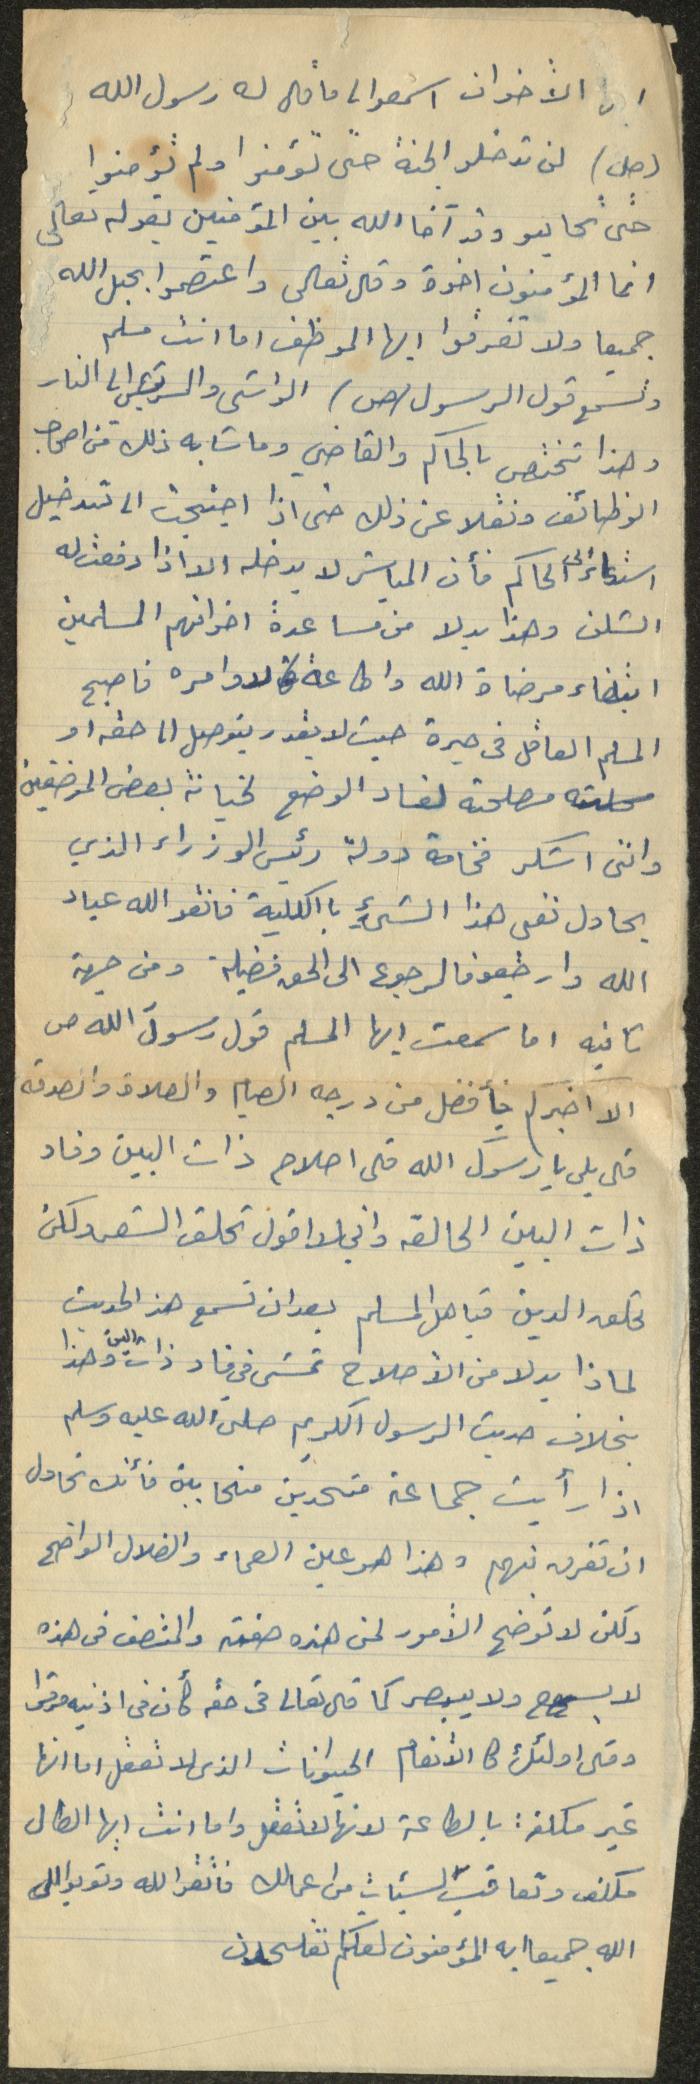 ايها الأخوان اسمعوا الى ما قال له رسول الله
(ص) لن تدخلو الجنة حتى تؤمنوا ولم تؤمنوا
حتى تحابو وقد آخا الله بين المؤمنين بقوله تعالى
انما المؤمنون اخوة وقال تعالى واعتصموا بحبل الله
جميعا ولا تفرقوا ايها الموظف اما انت مسلم
وتسمع قول الرسول (ص) الراشي والمرتشي الى النار
وهذا تختص بالحاكم والقاضي وما شابه ذلك من اصحاب
الوظائف ونقلا عن ذلك حتى اذا احتيجت الى تدخيل
استدعاء الى الحاكم فأن المباشر لا يدخله الا اذا دفعت له
الشلن وهذا بدلا من مساعدة اخوانهم المسلمين
ابتغاء مرضاة الله واطاعة لاوامره فاصبح
المسلم العاقل في حيرة حيث لا يقدر يتوصل الى حقه او
مصلحته لفساد الوضع لخيانة بعض الموضفين
وانني اشكر فخامة دولة رئيس الوزراء الذي
يحاول نفى هذا الشيء بااكللية فاتقو الله عباد
الله وارجعو فالرجوع الى الحق فضيلة ومن جهة
ثانيه اما سمعت ايها المسلم قول رسول الله ص
الا اخبركم بأفضل من درجه الصيام والصلاة والصدقه
قال بلى يا رسول الله قال اصلاح ذات البين وفساد
ذات البين الحالقه واني لا اقول تحلق الشعر ولكن
تحلق الدين فيا اهل المسلم بعد ان تسمع هذ الحديث
لماذا بدلا من الأصلاح تمشى في فساد ذات البين وهذا
بخلاف حديث الرسول الكريم صلى الله عليه وسلم
اذا رأيت جماعة متحدين متحابين فأنك تحاول
ان تفرق بينهم وهذا هو عين العماء والضلال الواضح
ولكن لا توضح الأمور لمن هذه صفته والمتصف في هذه
لا يسمع ولا يبصر كما قال تعالى في حقه كأن في اذنيه وقرا
وقال اولئك كالأنعام الحيوانات الذى لا تعقل اما انها
غير مكلفة بالطاعة لانها لا تعقل واما انت ايها الضال
مكلف وتعاقب لسيئات من اعمالك فاتقو الله وتوبوا الى
الله جميعا ايه المؤمنون لعلكم تفلحون